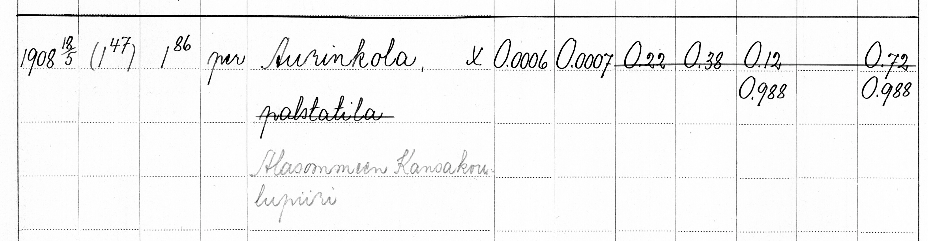 1908 18/5 (1 47) 1 86 per Aurinkola, X 0.0006 0.0007 0.22 0.38 0.12 0.72
0.988 0.988
palstatila
Alasommeen Kansakou-
lupiiri